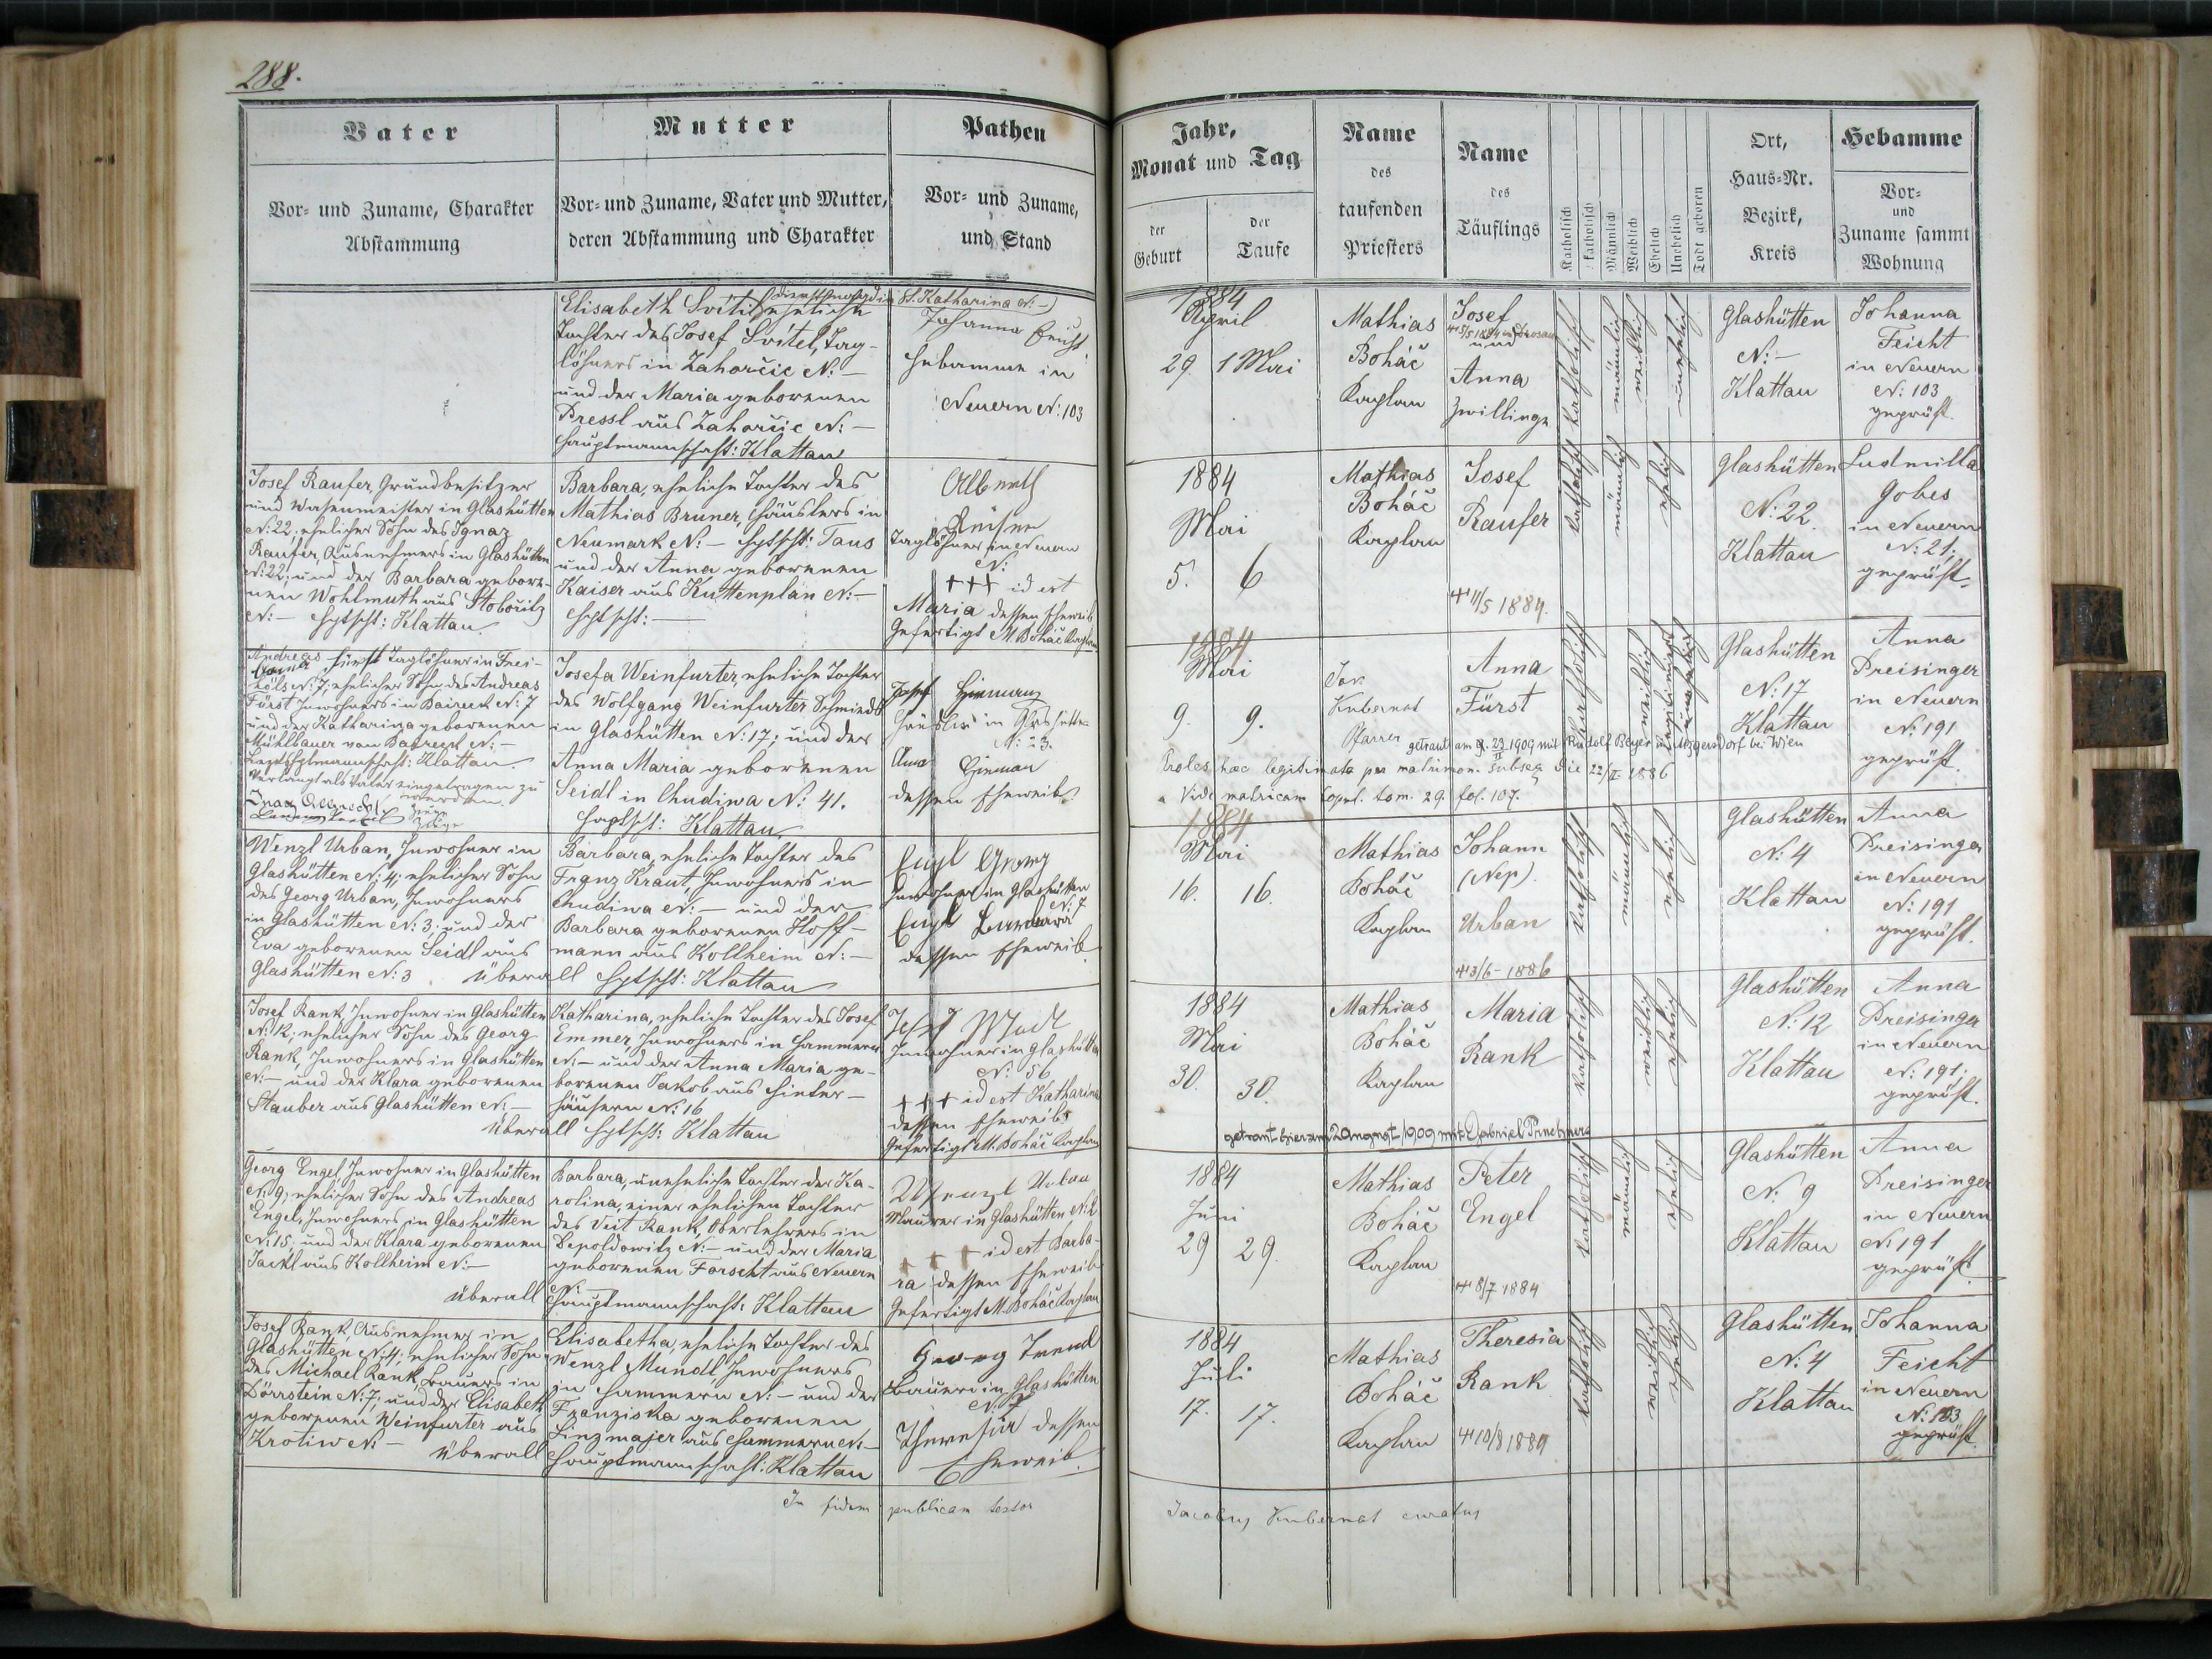 288.
Vater
Vor- und Zuname, Charakter
Abstammung
Mutter
Vor- und Zuname, Vater und Mutter,
deren Abstammung und Charakter
Pathen
Vor- und Zuname,
und Stand
Jahr,
Monat und Tag
der
Geburt
der
Taufe
Name
des
taufenden
Priesters
Name
des
Täuflings
Katholisch
Männlich
Weiblich
Ehelich
Unehelich
Todt geboren
Ort,
Haus-Nr.
Bezirk,
Kreis
Hebamme
Vor-
und
Zuname sammt
Wohnung
Elisabeth Svitil eheliche
Tochter des Josef Svitel, Tag-
löhners in Zahorčic N: –
und der Maria geborenen
Pressl aus Zahorčic N: –
Hauptmannschaft: Klattau
St. Katharina N: –)
Johanna Feicht
Hebamme in
Neuern N: 103
1884
April
29. 1 Mai
Mathias
Boháč
Kaplan
Josef
und
Anna
Zwillinge
katholisch katholisch
männlich
weiblich
unehelich
Glashütten
N: –
Klattau
Johanna
Feicht
in Neuern
N: 103
geprüft.
Josef Raufer, Grundbesitzer
und Wasenmeister in Glashütten
N: 22; ehelicher Sohn des Ignaz
Raufer, Ausnehmers in Glashütten
N: 22; und der Barbara gebore-
nen Wohlmuth aus Stobořitz
N: – Hptscht: Klattau.
Barbara, eheliche Tochter des
Mathias Bruner, Häuslers in
Neumark N: – Hptscht: Taus
und der Anna geborenen
Kaiser aus Kuttenplan N: –
Hptscht: –
Taglöhner in Neuern
N:
+++ id est
Maria dessen Eheweib
Gefertigt M. Boháč Kaplan
1884
Mai
5. 6
Mathias
Boháč
Kaplan
Josef
Raufer
+ 11/5 1884.
katholisch
männlich
ehelich
Glashütten
N: 22.
Klattau
Ludmilla
Gobes
in Neuern
N: 21;
geprüft.
Andreas Fürst Taglöhner in Frei-
höls N: 7; ehelicher Sohn des Andreas
Fürst Inwohners in Baireck N: 7
und der Katharina geborenen
Mühlbauer von Baireck N: –
Bezirkshptmannschaft: Klattau.
Verlangt als Vater eingetragen zu
werden.
Zeuge
Zeuge
Josefa Weinfurter, eheliche Tochter
des Wolfgang Weinfurter Schmieds
in Glashütten N: 17; und der
Anna Maria geborenen
Seidl in Chudiwa N: 41.
Hptscht: Klattau
Josef
Häusler in Glashütten
N: 23.
Anna
dessen Eheweib
1884
Mai
9. 9.
Jak.
Kubernat
Pfarrer
Anna
Fürst
katholisch
weiblich
legitimirt
unehelich
Glashütten
N: 17
Klattau
Anna
Preisinger
in Neuern
N: 191
geprüft.
getraut am 23 1909 mit Rudolf Beyer in Atzgersdorf bei Wien
Proles haec legitimata per matrimon. subseq die 22/II 1886
Vide matricam Copul. tom. 29. fol. 107.
Wenzl Urban, Inwohner in
Glashütten N: 4; ehelicher Sohn
des Georg Urban, Inwohners
in Glashütten N: 3; und der
Eva geborenen Seidl aus
Glashütten N: 3 Überall Hptscht: Klattau
Barbara, eheliche Tochter des
Franz Kraut, Inwohners in
Chudiwa N: – und der
Barbara geborenen Hoff-
mann aus Kollheim N: –
Engl Georg
Inwohner in Glashütten
N: 7
Engl Barbara
dessen Eheweib.
1884
Mai
16. 16.
Mathias
Boháč
Kaplan
Johann
(Nep).
Urban
+ 3/6 - 1886
katholisch
männlich
ehelich
Glashütten
N: 4
Klattau
Anna
Preisinger
in Neuern
N: 191
geprüft.
Josef Rank, Inwohner in Glashütten
N: 12; ehelicher Sohn des Georg
Rank, Inwohners in Glashütten
N: – und der Klara geborenen
Stauber aus Glashütten N: –
Überall Hptscht: Klattau
Katharina, eheliche Tochter des Josef
Emmer, Inwohners in Hammern
N: – und der Anna Maria ge-
borenen Jakob aus Hinter-
häusern N: 16
Josef
Inwohner in Glashütten
N: 56
+++ id est Katharina
dessen Eheweib
Gefertigt M. Boháč Kaplan
1884
Mai
30. 30.
Mathias
Boháč
Kaplan
Maria
Rank
katholisch
weiblich
ehelich
Glashütten
N: 12
Klattau
Anna
Preisinger
in Neuern
N: 191;
geprüft.
getraut hier am 2 August 1909 mit Gabriel
Georg Engel, Inwohner in Glashütten
N: 9; ehelicher Sohn des Andreas
Engel, Inwohners in Glashütten
N: 15; und der Klara geborenen
Jackl aus Kollheim N: –
Überall
Barbara, uneheliche Tochter der Ka-
rolina, einer ehelichen Tochter
des Veit Rank, Oberlehrers in
Depoldowitz N: – und der Maria
geborenen Forscht aus Neuern
N: –
Hauptmannschaft: Klattau
Wenzl Urban
Maurer in Glashütten N: 2
+++ id est Barba-
ra dessen Eheweib
Gefertigt M. Boháč Kaplan
1884
Juni
29 29.
Mathias
Boháč
Kaplan
Peter
Engel
+ 8/7 1884
katholisch
männlich
ehelich
Glashütten
N: 9
Klattau
Anna
Preisinger
in Neuern
N: 191
geprüft.
Josef Rank, Ausnehmer in
Glashütten N: 4; ehelicher Sohn
des Michael Rank, Bauers in
Dörrstein N: 7; und der Elisabeth
geborenen Weinfurter aus
Krotiw N: –
Überall
Elisabetha, eheliche Tochter des
Wenzl Mundl, Inwohners
in Hammern N: – und der
Franziska geborenen
Linzmajer aus Hammern N: –
Hauptmannschaft: Klattau
Georg
Bauer in Glashütten
N: 7
Theresia dessen
Eheweib.
1884
Juli
17. 17.
Mathias
Boháč
Kaplan
Theresia
Rank
+ 10/8 1884
katholisch
weiblich
ehelich
Glashütten
N: 4
Klattau
Johanna
Feicht
in Neuern
N: 103
geprüft.
In fidem publicam testor
Jacobus Kubernat curatus